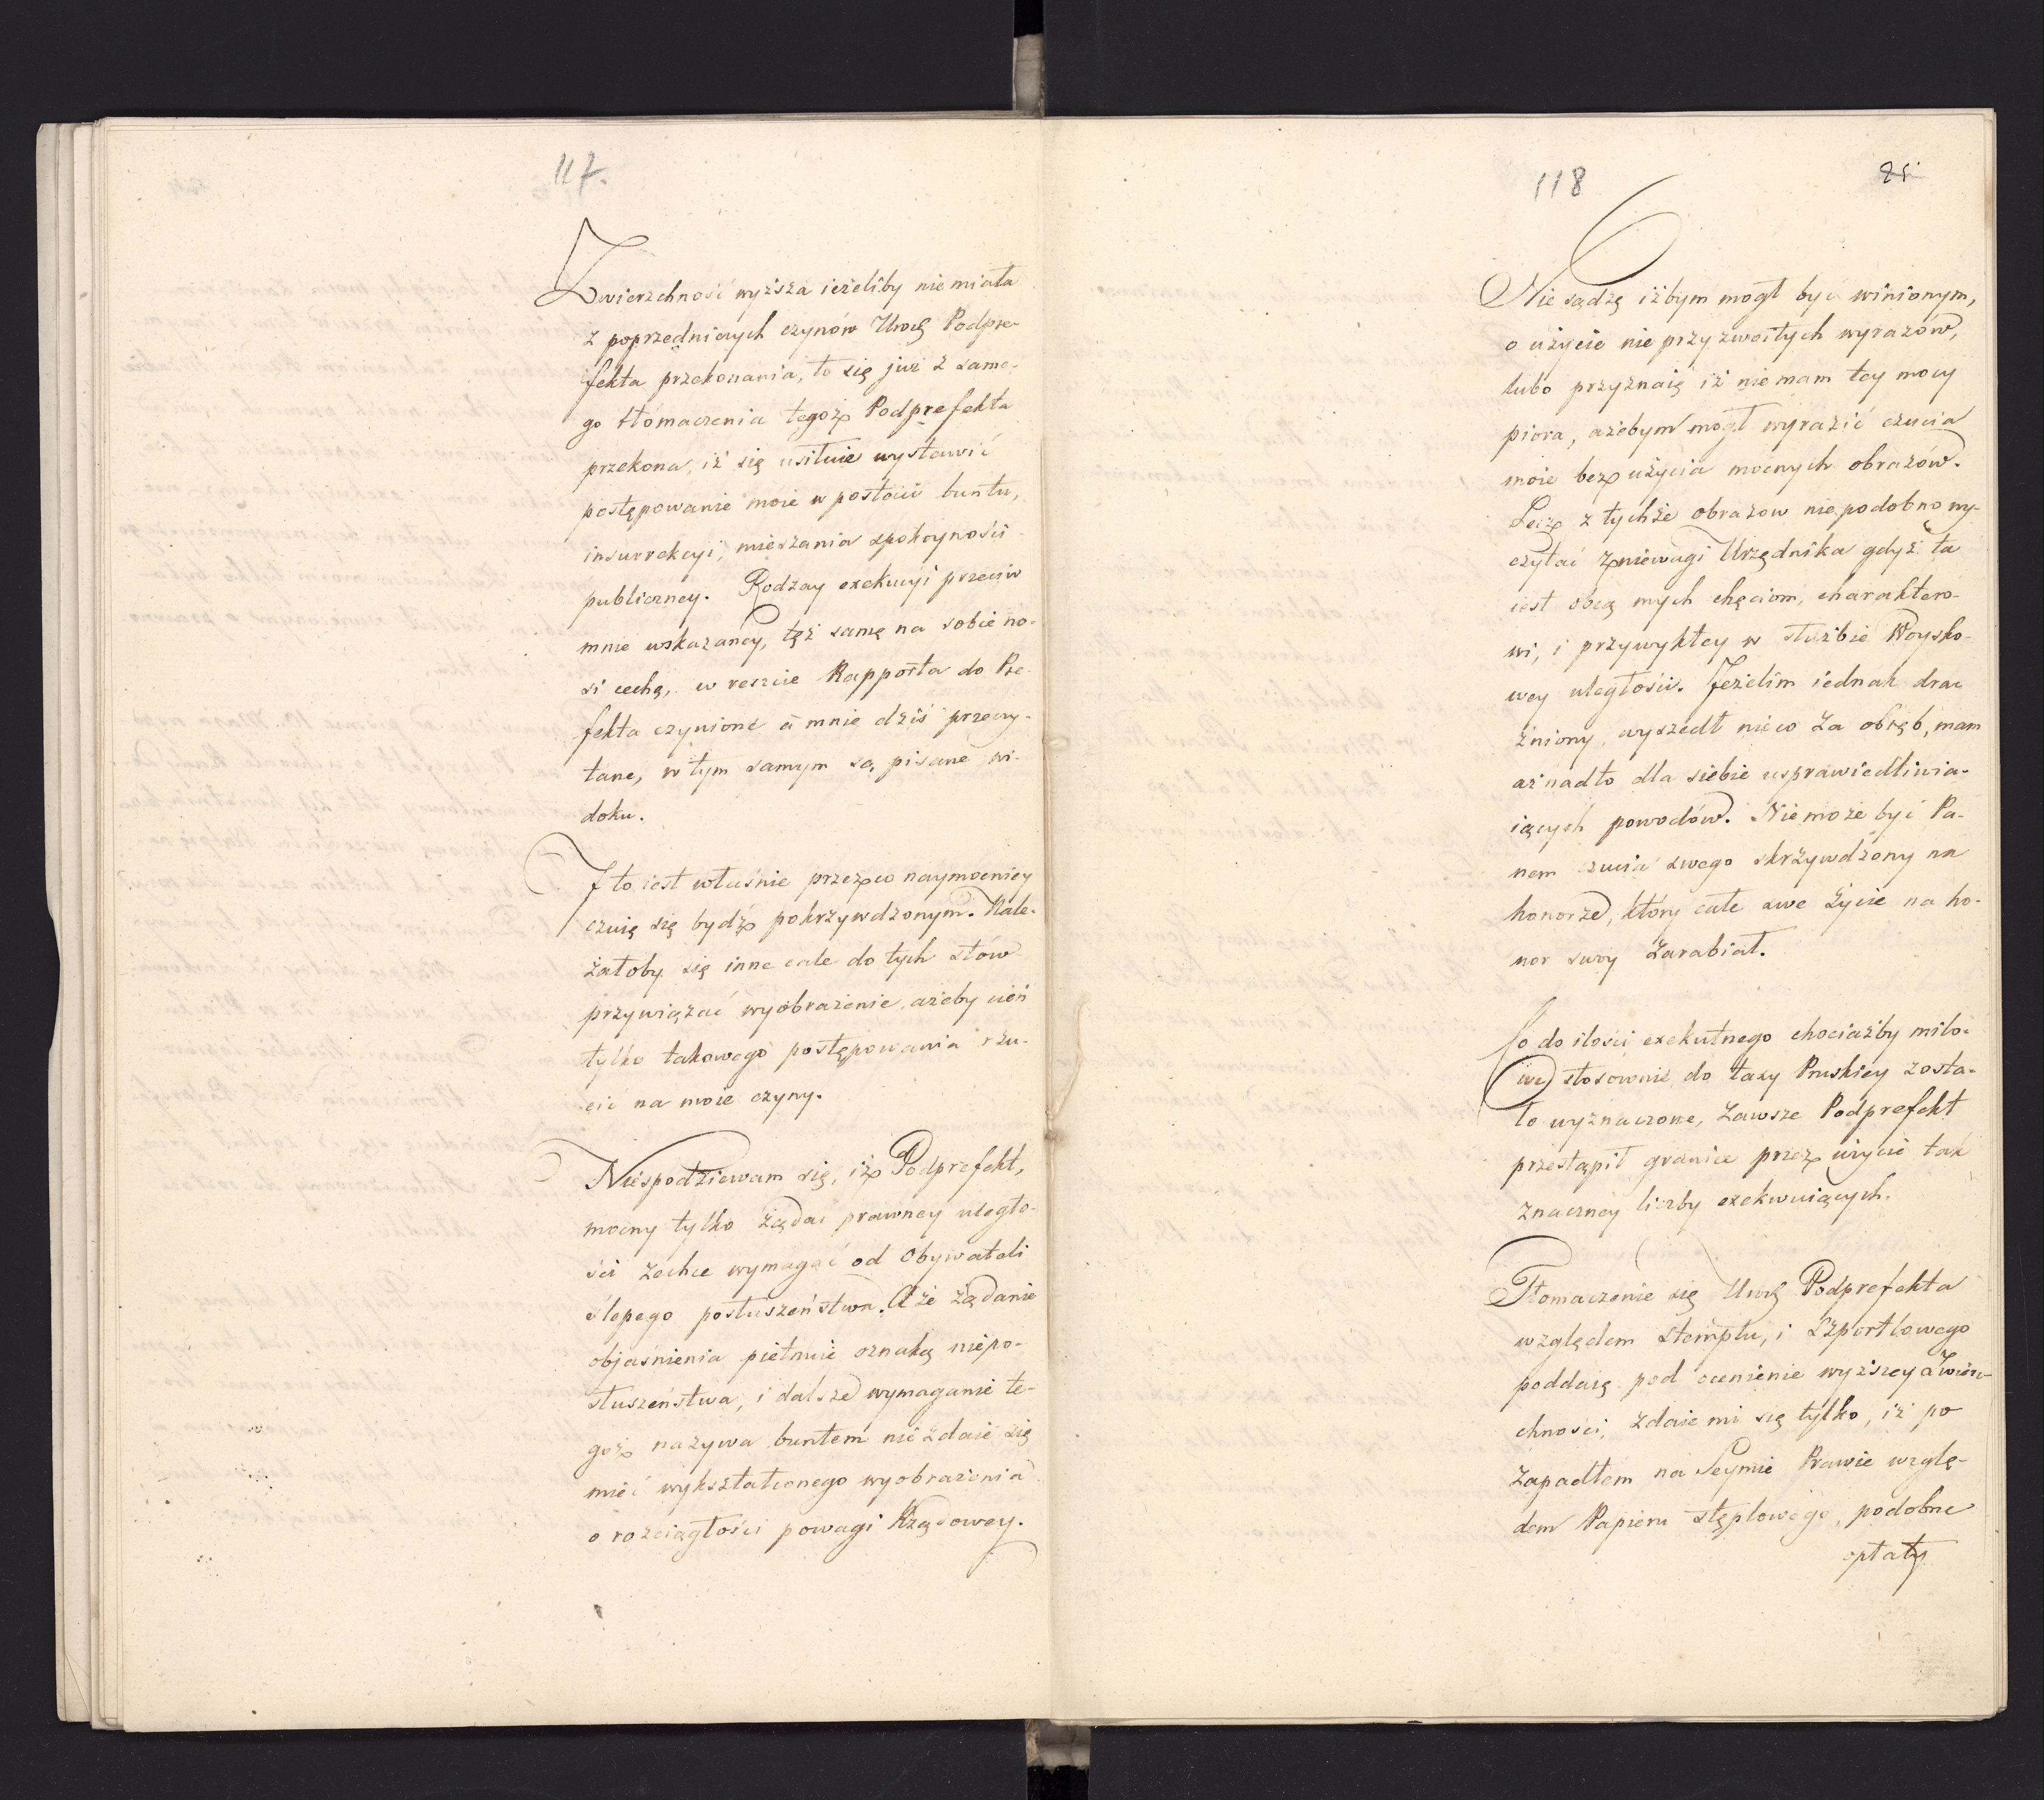 117.
Zwierzchność wyższa ieżeliby nie miała
z poprzedniczych czynów Urog Podpre-
fekta przekonania, to się już z same-
go tłomaczenia tegoż Podprefekta
przekona, iż się usiłuie wystawić
postępowanie moie w postaci buntu,
insurrekcyi, mieszania spokoyności
publiczney. Rodzay exekucyi przeciw
mnie wskazaney, tęż samę na sobie no-
si cechę, w reszcie Rapporta do Pre-
fekta czynione a mnie dziś przeczy-
tane, w tym samym są pisane wi-
doku.
I to iest właśnie przez co naymocniey
czuię się bydź pokrzywdzonym. Nale-
żałoby się inne całe do tych słów
przywiązać wyobrażenie, ażeby cień
tylko takowego postępowania rzu-
cić na moie czyny.
Niespodziewam się, iż Podprefekt,
mocny tylko żądać prawney uległo-
ści zechce wymagać od Obywateli
ślepego posłuszeństwa. A że żądanie
objaśnienia piętnuie oznaką niepo-
słuszeństwa, i dalsze wymaganie te-
goż nazywa buntem nie zdaie się
mieć wykształconego wyobrażenia
o rozciągłości powagi Rządowey.
118
25
Nie sądzę iżbym mogł być winionym,
o użycie nie przyzwoitych wyrazów,
lubo przyznaię iż nie mam tey mocy
piora, ażebym mogł wyrazić czucia
moie bez użycia mocnych obrazów.
Lecz z tychże obrazow nie podobno wy-
czytać zniewagi Urzędnika gdyż ta
iest obcą mych chęciom, charaktero-
wi, i przywykłey w służbie Woysko-
wey uległości. Jeżelim iednak draż
żniony, wyszedł nieco za obręb, mam
aż nadto dla siebie usprawiedliwia-
iących powodów. Nie może być Pa-
nem czucia swego skrzywdzony na
honorze, który całe swe życie na ho-
nor swoy zarabiał.
Co do ilości exekutnego chociażby milo-
we stosownie do taxy Pruskiey zosta-
ło wyznaczone, zawsze Podprefekt
przestąpił granice przez użycie tak
znaczney liczby exekwuiących.
Tłomaczenie się Urog Podprefekta
względem stemplu, i Szportlowego
poddaię pod ocenienie wyższey Zwierz-
chności, zdaie mi się tylko, iż po
zapadłem na Seymie Prawie wzglę-
dem Papieru stęplowego, podobne
opłaty